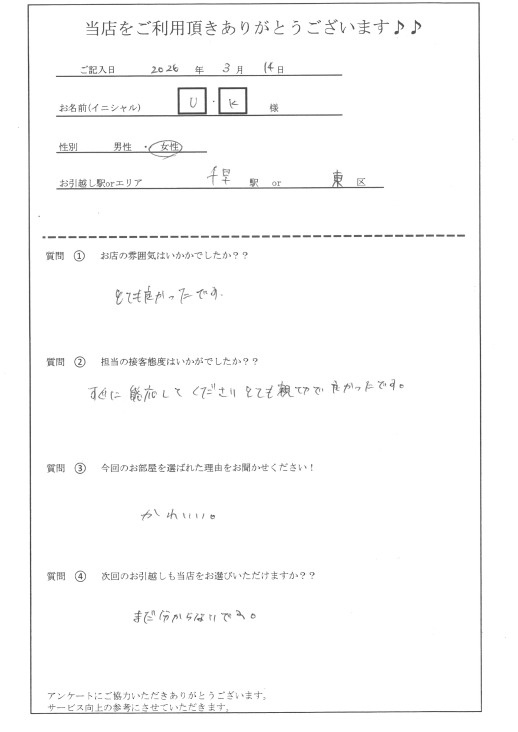 当店をご利用頂きありがとうございます♪♪
ご記入日 2026 年 3 月 14 日
お名前(イニシャル) U ・ K 様
性別 男性 ・ 女性
お引越し駅orエリア 千早 駅 or 東 区
質問 ① お店の雰囲気はいかかでしたか??
とても良かったです.
質問 ② 担当の接客態度はいかがでしたか??
すぐに対応して くださり とても親切で 良かったです。
質問 ③ 今回のお部屋を選ばれた理由をお聞かせください!
かわいい。
質問 ④ 次回のお引越しも当店をお選びいただけますか??
まだ分からないです。
アンケートにご協力いただきありがとうございます。
サービス向上の参考にさせていただきます。